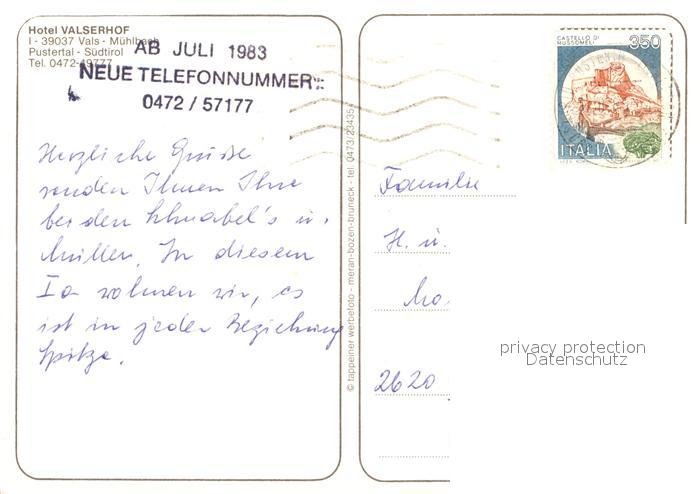 Hotel VALSERHOF
I - 39037 Vals - Mühlbach
Pustertal - Südtirol
Tel. 0472-49777
AB JULI 1983
NEUE TELEFONNUMMER:
0472 / 57177
Herzliche Grüße
senden Ihnen Ihre
beiden Schnabel's u.
Müller. In diesem
wohnen wir, es
ist in jeder Beziehung
Spitze.
© tappeiner werbefoto - meran-bozen-bruneck - tel. 0473/23435
CASTELLO DI
MUSSOMELI
350
ITALIA
Familie
H. u.
2620
privacy protection
Datenschutz